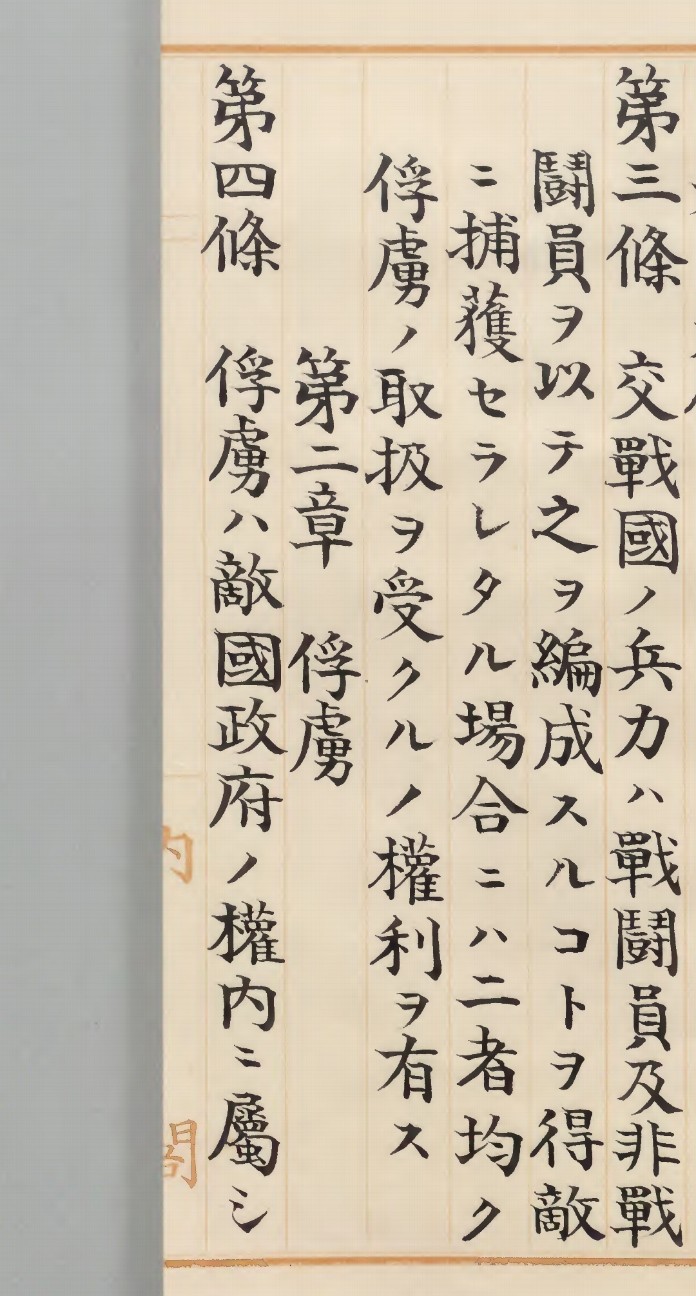 第三條　交戰國ノ兵力ハ戰鬪員及非戰
鬪員ヲ以テ之ヲ編成スルコトヲ得敵
ニ捕獲セラレタル場合ニハ二者均ク
俘虜ノ取扱ヲ受クルノ權利ヲ有ス
第二章　俘虜
第四條　俘虜ハ敵國政府ノ權內ニ屬シ
內閣